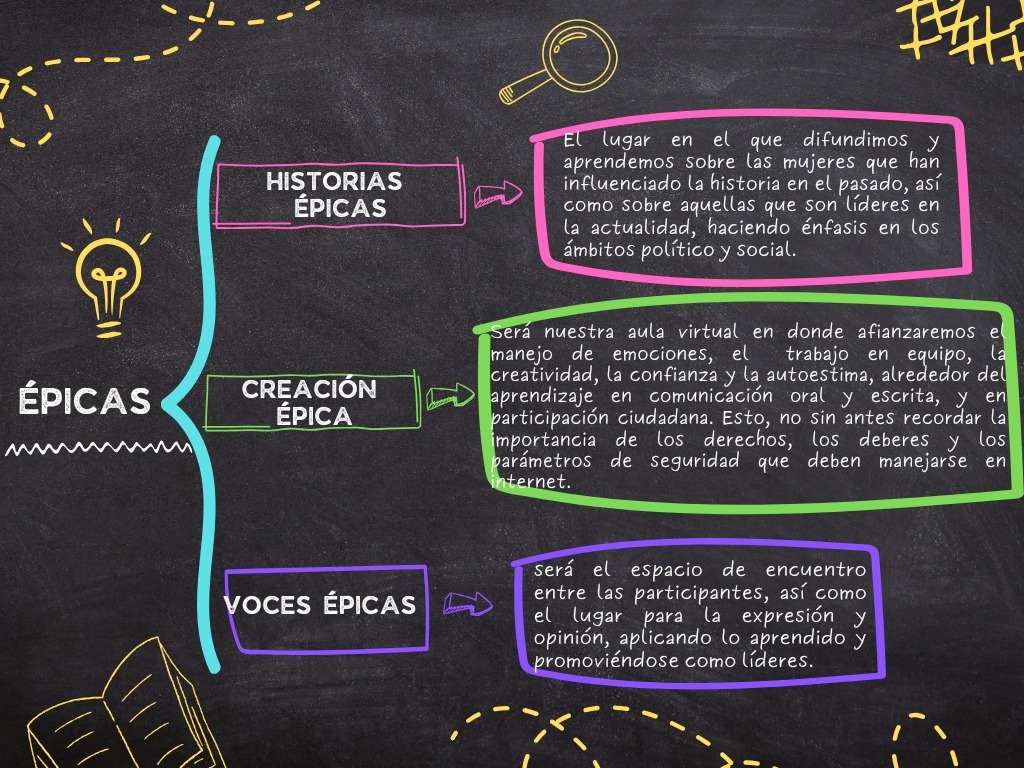 HISTORIAS
ÉPICAS
El lugar en el que difundimos y
aprendemos sobre las mujeres que han
influenciado la historia en el pasado, así
como sobre aquellas que son líderes en
la actualidad, haciendo énfasis en los
ámbitos político y social.
ÉPICAS
CREACIÓN
ÉPICA
Será nuestra aula virtual en donde afianzaremos el
manejo de emociones, el trabajo en equipo, la
creatividad, la confianza y la autoestima, alrededor del
aprendizaje en comunicación oral y escrita, y en
participación ciudadana. Esto, no sin antes recordar la
importancia de los derechos, los deberes y los
parámetros de seguridad que deben manejarse en
internet.
VOCES ÉPICAS
será el espacio de encuentro
entre las participantes, así como
el lugar para la expresión y
opinión, aplicando lo aprendido y
promoviéndose como líderes.